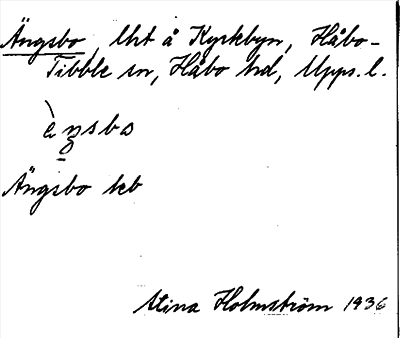 Ängsbo, lht å Kyrkbyn, Håbo-
Tibble sn, Håbo hd, Upps. l.
Ängsbo
Stina Holmström 1936